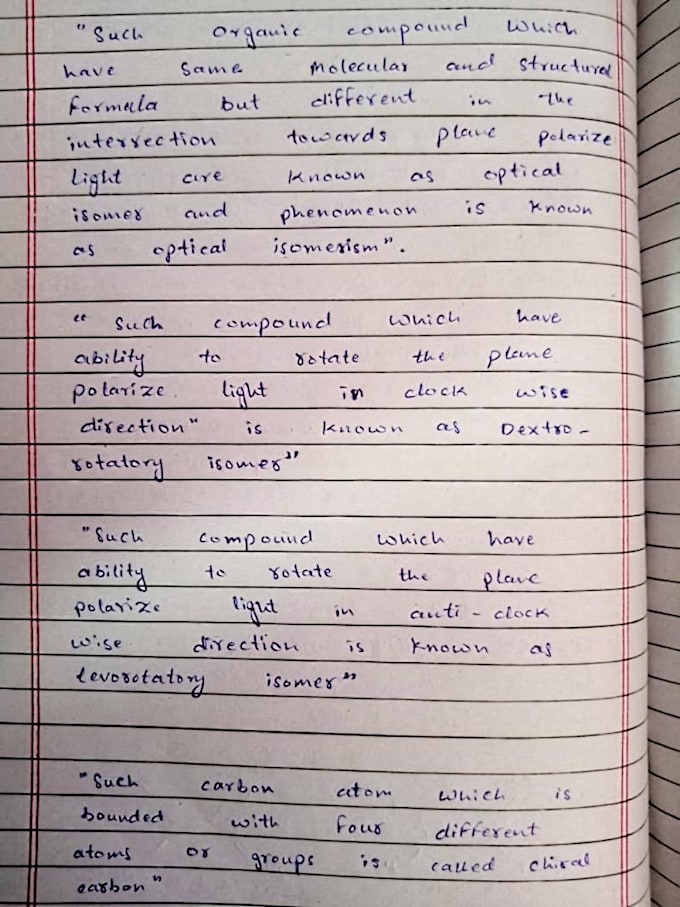 "Such organic compound which
have same molecular and structural
formula but different in the
interrection towards plane polarize
light are known as optical
isomer and phenomenon is known
as optical isomerism".
"Such compound which have
ability to rotate the plane
polarize light in clock wise
direction" is known as Dextro-
rotatory isomer"
"Such compound which have
ability to rotate the plane
polarize light in anti-clock
wise direction is known as
levorotatory isomer"
"Such carbon atom which is
bounded with four different
atoms or groups is called chiral
carbon"